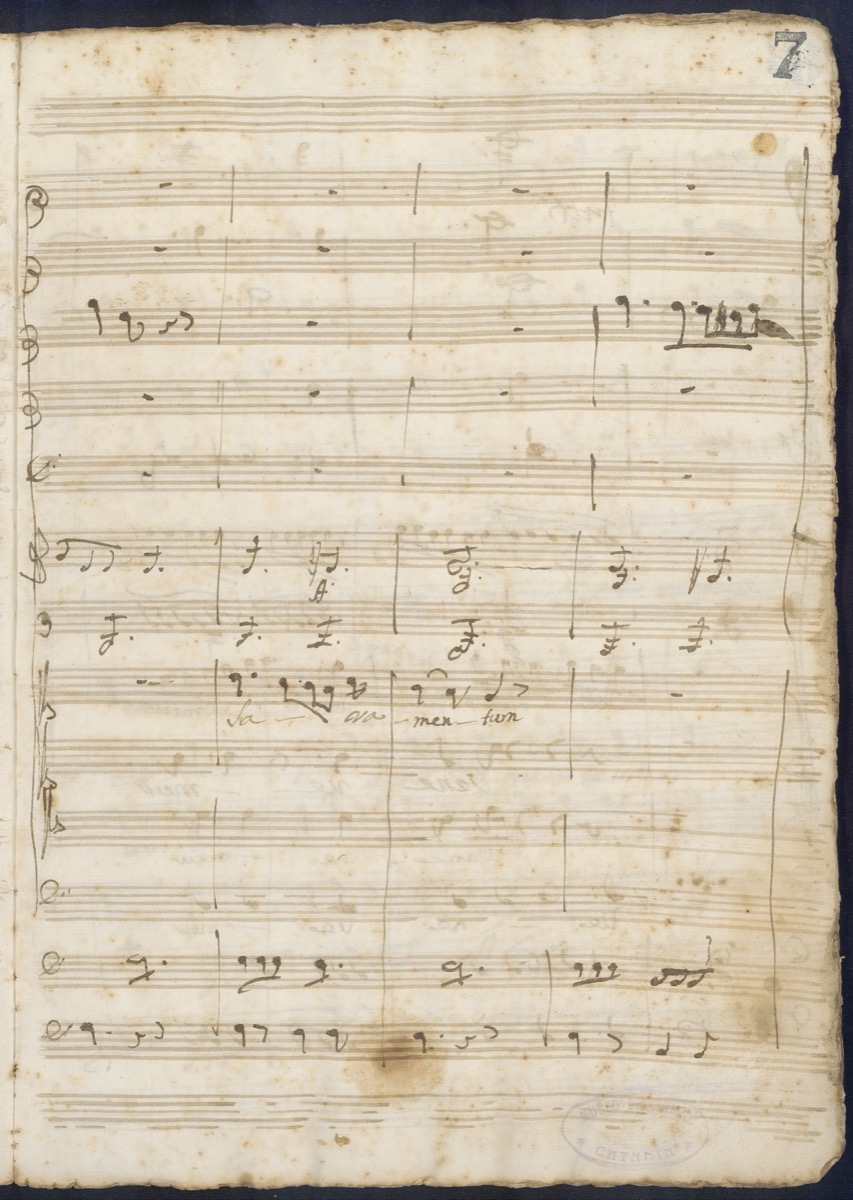 7
Sa - cra - men - tum
CATANIA